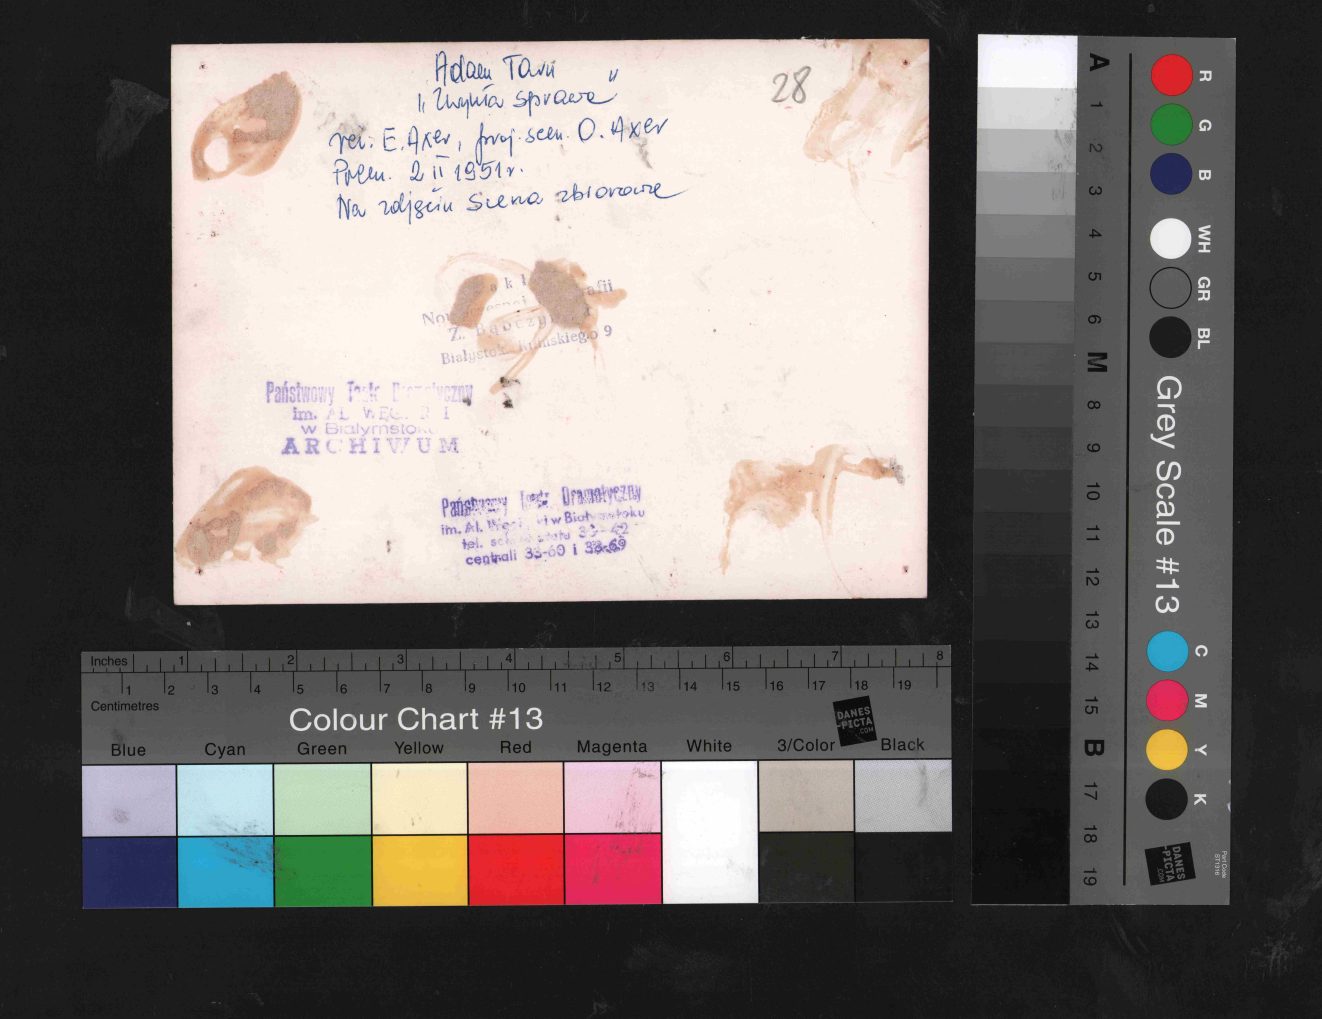 Adam Tarn
„Zwykła sprawa”
28
reż. E. Axer, proj. scen. O. Axer
Prem. 2 II 1951r.
Na zdjęciu scena zbiorowa
Z.
Białystok 9
Państwowy Teatr Dramatyczny
im. AL. WĘG
w Białymstoku
ARCHIWUM
Państwowy Teatr Dramatyczny
im. Al. w Białymstoku
tel.
centrali 33-60 i 33-69
Inches 1 2 3 4 5 6 7 8
1 2 3 4 5 6 7 8 9 10 11 12 13 14 15 16 17 18 19
Centimetres
Colour Chart #13
DANES
-PICTA
.COM
Blue Cyan Green Yellow Red Magenta White 3/Color Black
A 1 2 3 4 5 6 M 8 9 10 11 12 13 14 15 B 17 18 19
R G B WH GR BL Grey Scale #13 C M Y K
DANES
-PICTA
.COM
Part Code
ST1316